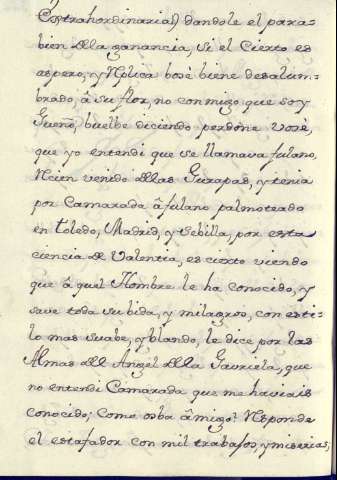 Cextrahordinarias) dandole el para=
bien della ganancia, si el Cierto es
aspero, y Rplica bosè biene desalum=
brado, â su flor, no conmigo que soy
Gueno, buelbe diciendo perdòne vosè,
que yo entendi que se llamava fulano,
Rcien venido dellas Gurapas, y tenia
por Camarada â fulano palmoteado
en toledo, Madrid, y sebilla, por esta
ciencia de Valentia, es cierto viendo
que â quel Hombre le ha conocido, y
save toda su bida, y milagros, con esti=
lo mas suabe, y blando, le dice por las
Almas del Angel della Gavriela, que
no entendi Camarada que me haviais
conocido; Como osba âmigo? Responde
el estafador con mil trabajos, y miserias,